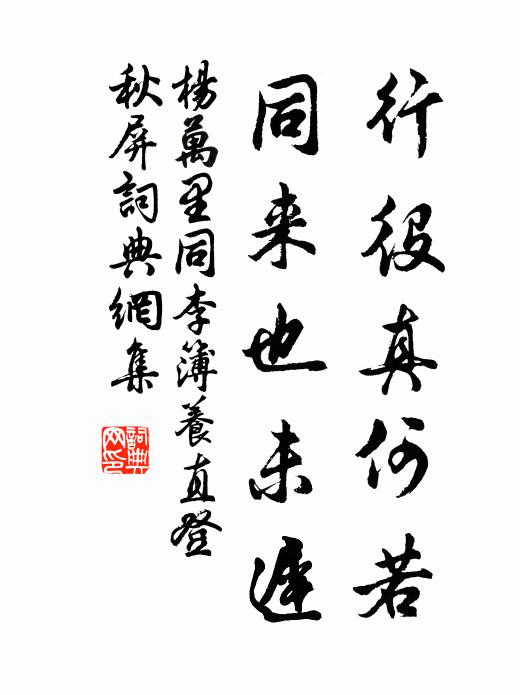 行役真何若
同来也未遲
楊萬里同李簿養直登
秋屏詞典網集
詞典网印